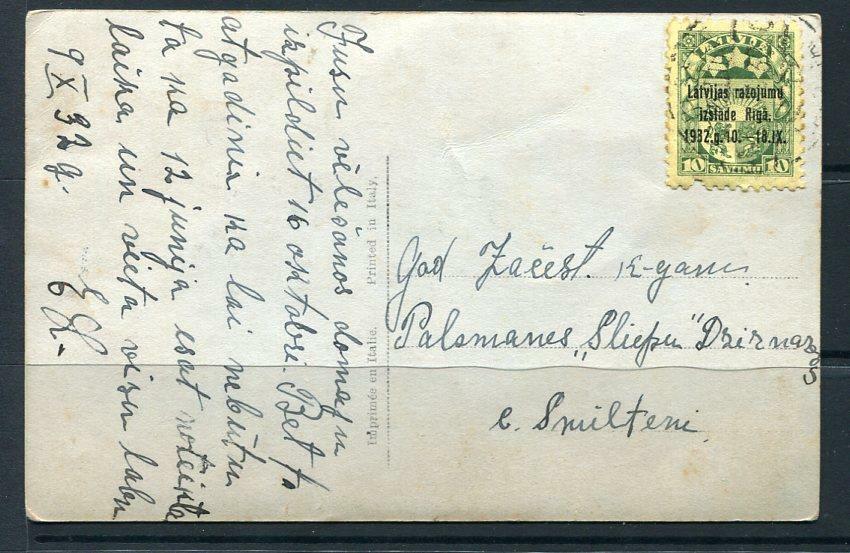 Jusu vēlešanos domaju
izpildiet 16 oktobri. Bet to
atgadinu ka lai nebūtu
ta ka 12 junija esat noteikta
laika un vieta visu labu
9 X 32 g.
Imprimée en Italie. Printed in Italy.
LATVIJA
Latvijas ražojumu
izstāde Rīgā.
1932.g.10.-18.IX.
10 SANTIMU 10
God Začest. k-gam
Palsmanes „Sliepu" Dzirnavas
c. Smilteni